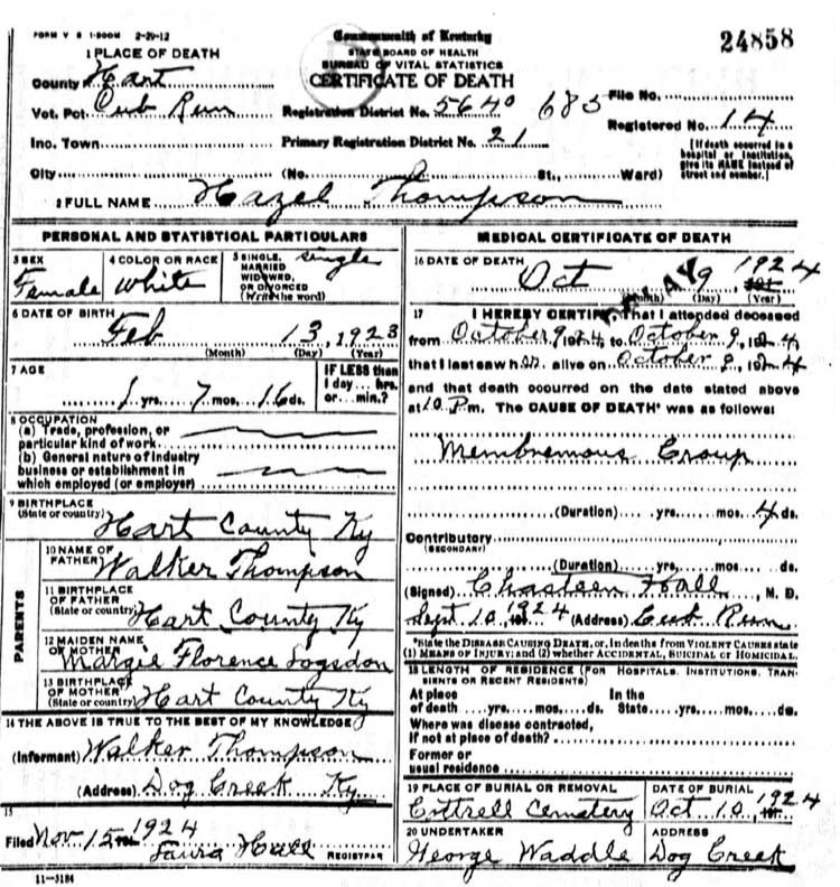 FORM V S 1-500M 2-29-12
Commonwealth of Kentucky
STATE BOARD OF HEALTH
BUREAU OF VITAL STATISTICS
CERTIFICATE OF DEATH
24858
1 PLACE OF DEATH
County Hart
Vot. Pct. Cub Run
Registration District No. 5640 685
File No.
Registered No. 14
Inc. Town
Primary Registration District No. 21
[If death occurred in a hospital or institution, give its NAME instead of street and number.]
City (No. St., Ward)
2 FULL NAME Hazel Thompson
PERSONAL AND STATISTICAL PARTICULARS
3 SEX
Female
4 COLOR OR RACE
White
5 SINGLE, MARRIED WIDOWED, OR DIVORCED (Write the word)
single
6 DATE OF BIRTH
Feb 13, 1923
(Month) (Day) (Year)
7 AGE
1 yrs. 7 mos. 16 ds.
IF LESS than
1 day... hrs.
or... min.?
8 OCCUPATION
(a) Trade, profession, or
particular kind of work
(b) General nature of industry
business or establishment in
which employed (or employer)
9 BIRTHPLACE
(State or country)
Hart County Ky
PARENTS
10 NAME OF
FATHER
Walker Thompson
11 BIRTHPLACE
OF FATHER
(State or country)
Hart County Ky
12 MAIDEN NAME
OF MOTHER
Margie Florence Logsdon
13 BIRTHPLACE
OF MOTHER
(State or country)
Hart County Ky
14 THE ABOVE IS TRUE TO THE BEST OF MY KNOWLEDGE
(Informant) Walker Thompson
(Address) Dog Creek Ky
15
Filed Nov 15 1924
Laura Hall REGISTRAR
11-3184
MEDICAL CERTIFICATE OF DEATH
16 DATE OF DEATH
Oct 9 1924
(Month) (Day) (Year)
17 I HEREBY CERTIFY, That I attended deceased
from October 9, 1924 to October 9, 1924
that I last saw her alive on October 9, 1924
and that death occurred on the date stated above
at 10 P m. The CAUSE OF DEATH* was as follows:
Membremous Croup
(Duration) yrs. mos. 4 ds.
Contributory
(SECONDARY)
(Duration) yrs. mos. ds.
(Signed) Chasteen Hall, M. D.
Sept. 10, 1924 (Address) Cub Run
*State the DISEASE CAUSING DEATH, or, in deaths from VIOLENT CAUSES state
(1) MEANS OF INJURY; and (2) whether ACCIDENTAL, SUICIDAL or HOMICIDAL.
18 LENGTH OF RESIDENCE (FOR HOSPITALS, INSTITUTIONS, TRANSIENTS OR RECENT RESIDENTS)
At place In the
of death yrs. mos. ds. State yrs. mos. ds.
Where was disease contracted,
if not at place of death?
Former or
usual residence
19 PLACE OF BURIAL OR REMOVAL
Cottrell Cematery
DATE OF BURIAL
Oct 10, 1924
20 UNDERTAKER
George Waddle
ADDRESS
Dog Creek